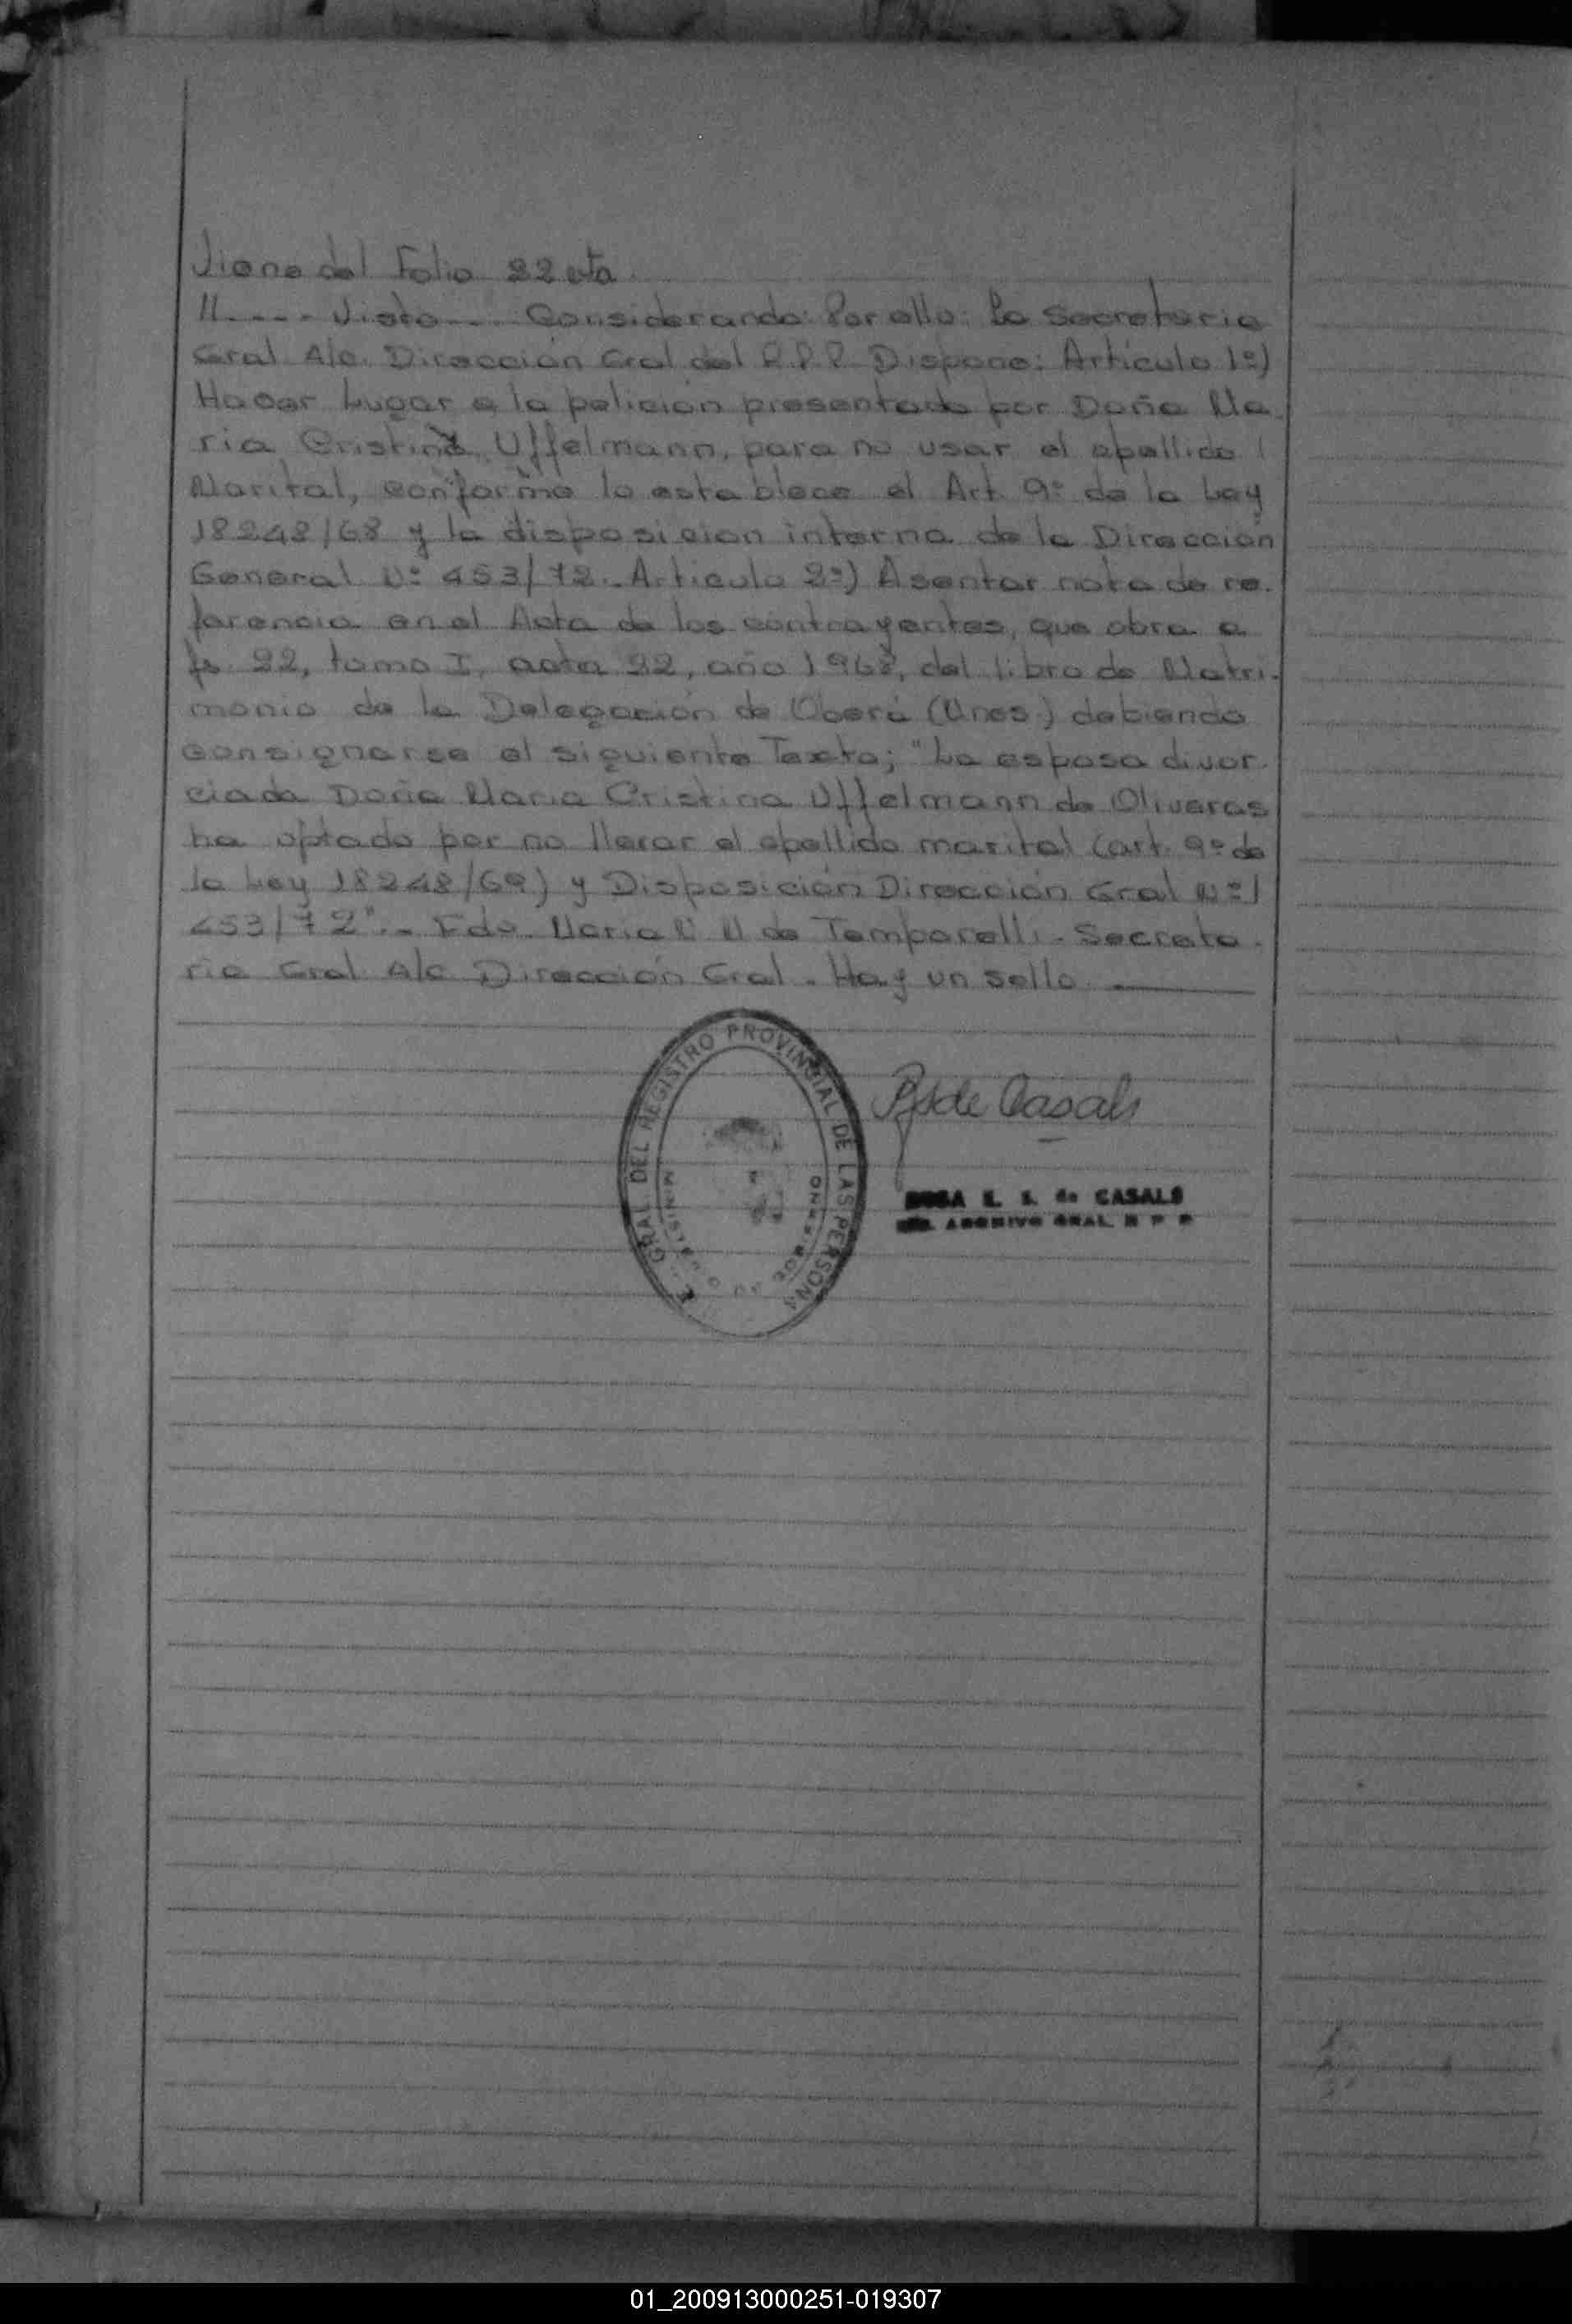 Viene del Folio 22 vta.
//---- Visto --- Considerando: Por ello: La Secretaria
Gral A/c. Dirección Gral del R.P.P. Dispone: Artículo 1º)
Hacer Lugar a la petición presentada por Doña Ma-
ria Cristina Uffelmann, para no usar el apellido /
Marital, conforme lo establece el Art. 9º de la Ley
18248/68 y la disposicion interna de la Dirección
General Nº 453/72.- Articulo 2º) Asentar nota de re-
ferencia en el Acta de los contrayentes, que obra a
fs. 22, tomo I, acta 22, año 1968, del libro de Matri-
monio de la Delegación de Oberá (Mnes.) debiendo
consignarse el siguiente Texto; "La esposa divor-
ciada Doña Maria Cristina Uffelmann de Oliveras
ha optado por no llevar el apellido marital (art. 9º de
la Ley 18248/69) y Disposición Dirección Gral Nº/
453/72".- Fdo. Maria de Temporelli - Secreta-
ria Gral A/c Dirección Gral. - Hay un sello
GRAL. DEL REGISTRO PROVINCIAL DE LAS PERSONA
MINIST GOBIERNO
de Casals
ROSA E. S. de CASALS
ARCHIVO GRAL. R P P
01_200913000251-019307